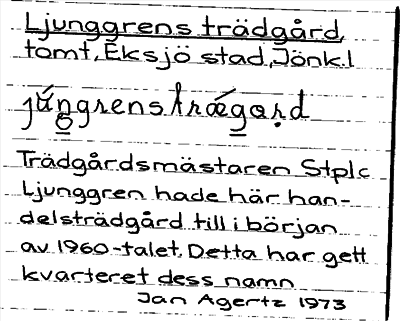 Ljunggrens trädgård,
tomt, Eksjö stad, Jönk.l
júngrens trǽgard
Trädgårdsmästaren Stplc
Ljunggren hade här han-
delsträdgård till i början
av 1960-talet. Detta har gett
kvarteret dess namn
Jan Agertz 1973